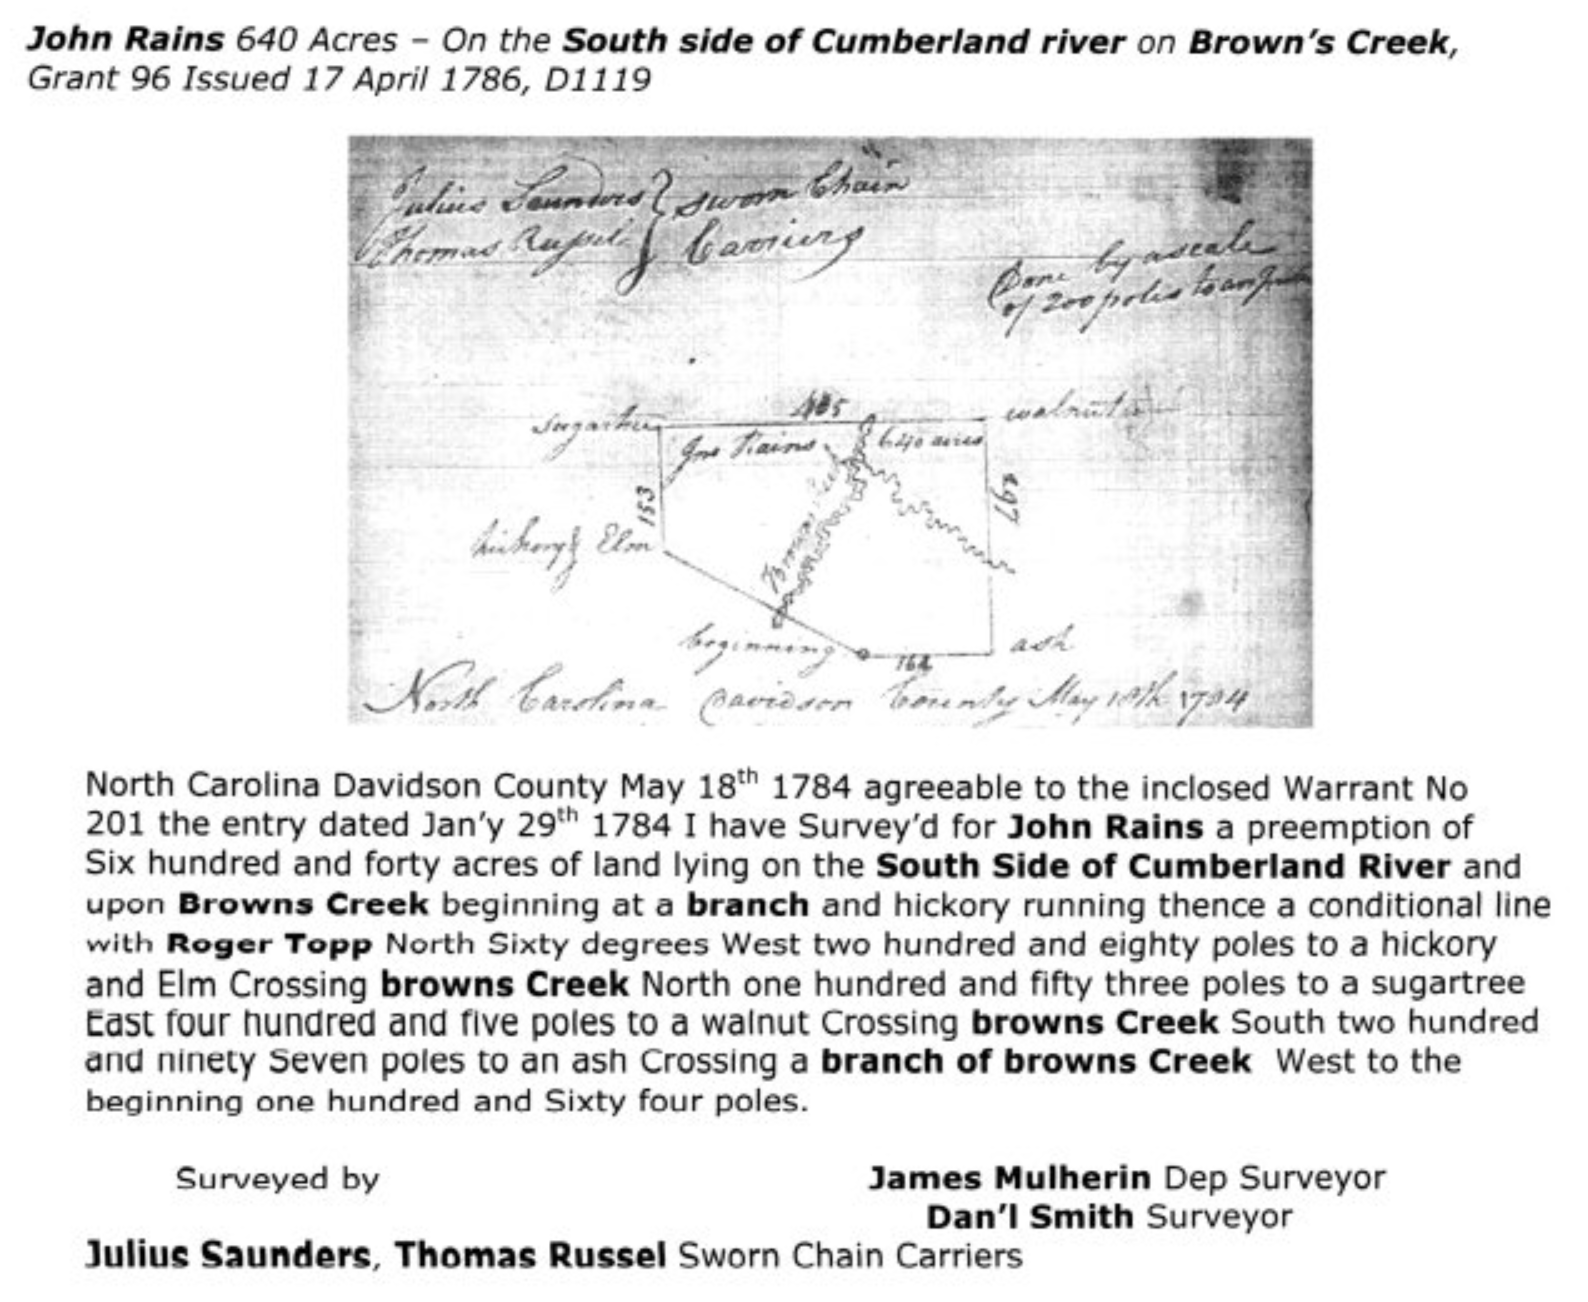 John Rains 640 Acres – On the South side of Cumberland river on Brown's Creek,
Grant 96 Issued 17 April 1786, D1119
Julius Saunders } sworn Chain
Thomas Russel } Carriers
Done by a scale
of 200 poles to an
405
sugartree
walnut
Jno Rains
640 acres
153
297
Browns
hickory & Elm
beginning
164
ash
North Carolina Davidson County May 18th 1784
North Carolina Davidson County May 18th 1784 agreeable to the inclosed Warrant No
201 the entry dated Jan'y 29th 1784 I have Survey'd for John Rains a preemption of
Six hundred and forty acres of land lying on the South Side of Cumberland River and
upon Browns Creek beginning at a branch and hickory running thence a conditional line
with Roger Topp North Sixty degrees West two hundred and eighty poles to a hickory
and Elm Crossing browns Creek North one hundred and fifty three poles to a sugartree
East four hundred and five poles to a walnut Crossing browns Creek South two hundred
and ninety Seven poles to an ash Crossing a branch of browns Creek West to the
beginning one hundred and Sixty four poles.
Surveyed by
James Mulherin Dep Surveyor
Dan'l Smith Surveyor
Julius Saunders, Thomas Russel Sworn Chain Carriers